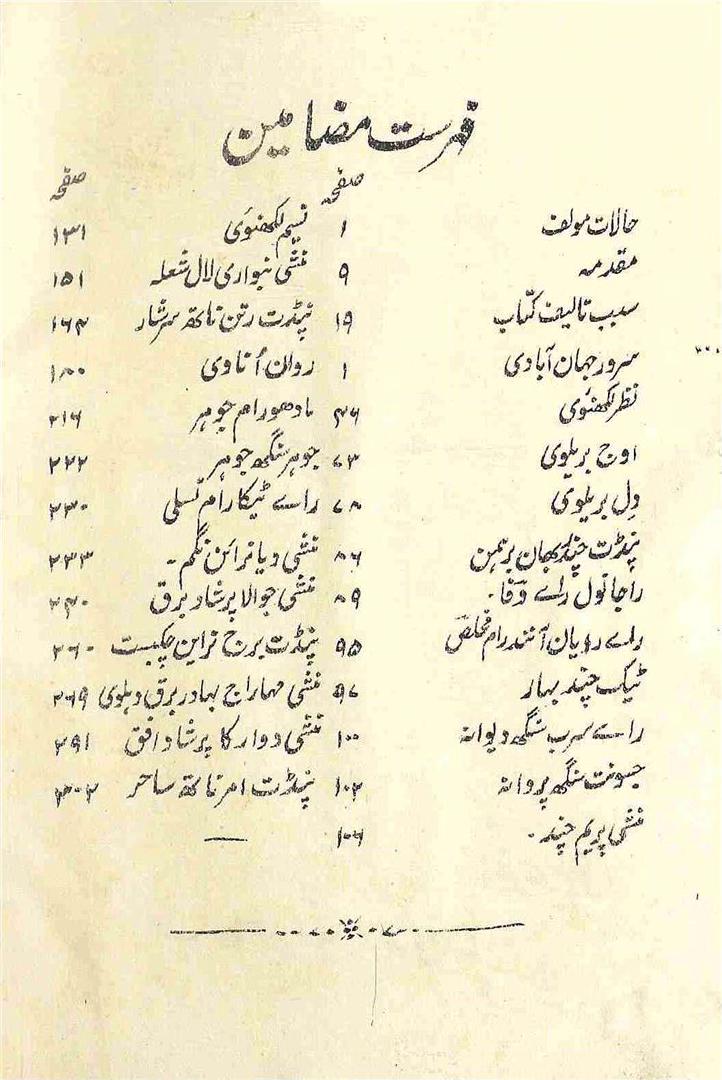 فہرست مضامین
صفحہ
حالات مولف ۱
مقدمہ ۹
سبب تالیف کتاب ۱۹
سرور جہان آبادی ۱
نظر لکھنوی ۳۶
اوج بریلوی ۶۳
دل بریلوی ۷۸
پنڈت چندر بھان برہمن ۸۶
راجا نول رائے وفا۔ ۸۹
رائے رایان آنند رام مخلص ۹۵
ٹیک چند بہار ۹۷
رائے سرب سنگھ دیوانہ ۱۰۰
جسونت سنگھ پروانہ ۱۰۲
منشی پریم چند۔ ۱۰۶
صفحہ
نسیم لکھنوی ۱۳۱
منشی بنواری لال شعلہ ۱۵۱
پنڈت رتن ناتھ سرشار ۱۶۴
روان اُناوی ۱۸۰
مادھو رام جوہر ۲۱۶
جوہر سنگھ جوہر ۲۲۲
رائے ٹیکا رام تسلی ۲۳۰
منشی دیا نرائن نگم۔ ۲۳۳
منشی جوالا پرشاد برق ۲۴۰
پنڈت برج نراین چکبست ۲۶۰
منشی مہاراج بہادر برق دہلوی ۲۶۹
منشی دوارکا پرشاد افق ۲۹۱
پنڈت امر ناتھ ساحر ۳۰۲